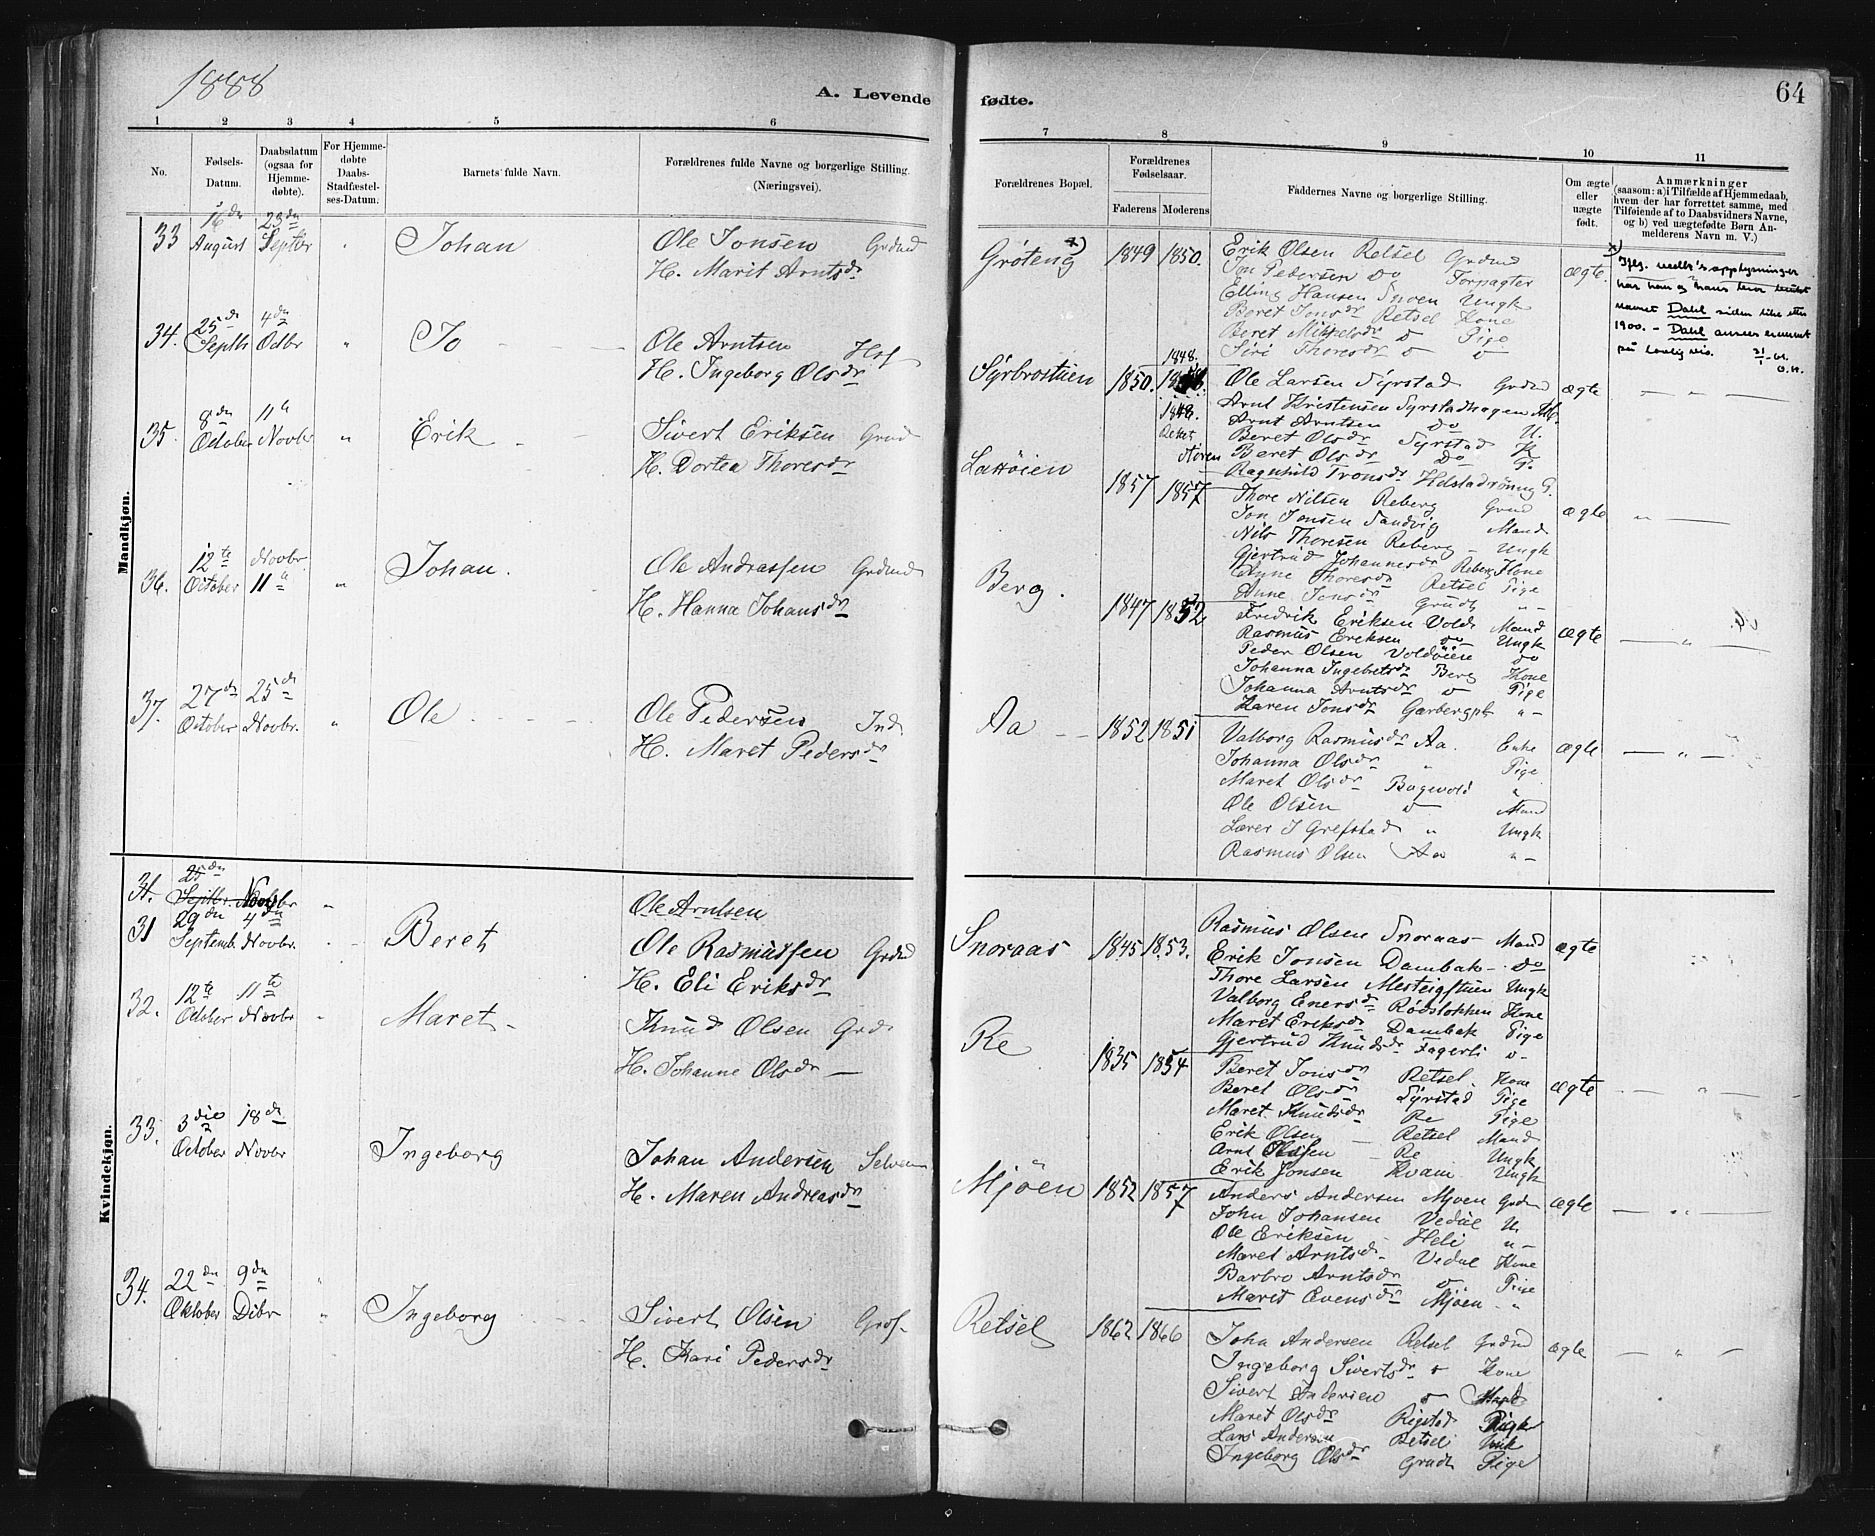 1888
A. Levende
fødte.
64
1 2 3 4 5 6
7 8 9 10 11
No.
Fødsels-Datum.
Daabsdatum (ogsaa for Hjemme-døbte).
For Hjemme-døbte Daabs-Stadfæstel-ses-Datum.
Barnets fulde Navn.
Forældrenes fulde Navne og borgerlige Stilling. (Næringsvei).
Forældrenes Bopæl.
Forældrenes Fødselsaar.
Faderens Moderens
Faddernes Navne og borgerlige Stilling.
Om ægte eller uægte født.
Anmærkninger
(saasom: a) i Tilfælde af Hjemmedaab,
hvem der har forrettet samme, med
Tilføiende af to Daabsvidners Navne,
og b) ved uægtefødte Børn An-
melderens Navn m. V.)
Mandkjøn.
33 16de August 23de Septbr " Johan
Ole Jonsen Grdmd
H. Marit Arntsdr
Grøteng x) 1849 1850.
Erik Olsen Retsel Grdmd
Jon Pedersen do Forpagter
Elling Hansen Snoen Ungk
Beret Jonsdr Retsel Kone
Beret Mikkelsdr do Pige
Siri Thoresdr do do
ægte
x) Iflg. vedk's opplysninger
har han og hans bror brukt
navnet Dahl siden like etter
1900. - Dahl ansees ervervet
på lovlig vis.
34. 25de Septbr 4de Octbr " Jo
Ole Arntsen
H. Ingeborg Olsdr
Syrbrostuen 1850. 1848.
Ole Larsen Syrstad Grdmd
Arnt Kristensen Syrstadhagen
Arnt Arntsen do U.
Beret Olsdr Syrstad K
Beret Olsdr Do P.
Ragnhild Tronsdr Helstadrønning G.
ægte
35. 8de October 11te Novbr " Erik
Sivert Eriksen Grmd
H. Dortea Thoresdr
Løkkøien 1857 1857
1848.
Støren
Thore Nilsen Reberg Grmd
Jon Jonsen Sandvig Mand
Nils Thoresen Reberg - Ungk
Gjertrud Johannesdr Reberg Kone
Anne Thoresdr Retsel Pige
Anne Jonsdr Grudt "-
ægte "
36. 12te October Novbr. 11te " Johan.
Ole Andreassen Grdmd
H. Hanna Johansdr
Berg. 1847 1852
Fredrik Eriksen Vold Mand
Rasmus Eriksen do Ungk
Peder Olsen Voldøien do
Johanna Ingebretsdr Berg Kone
Johanna Arntsdr do Pige
Karen Jonsdr Garbergpl. "-
ægte
37. 27de October 25de Novbr. " Ole
Ole Pedersen Ind.
H. Maret Pedersdr
Aa 1852 1851
Valborg Rasmusdr Aa. Enke
Johanna Olsdr " Pige
Maret Olsdr Bagvold "
Ole Olsen do Mand
Lærer J Grefstad " Ungk
Rasmus Olsen Aa "-
ægte
Kvindekjøn.
31. 25de Septbr. Novbr "
Ole Arntsen
31 29de Septemb. 4de Novbr. Beret
Ole Rasmussen Grdmd
H. Eli Eriksdr
Snoraas 1845 1853.
Rasmus Olsen Snoraas - Mand
Erik Jonsen Dambak - do
Thore Larsen Mesteigstuen Ungk
Valborg Enersdr Rødsløkken Kone
Maret Eriksdr Dambak Pige
Gjertrud Knudsdr Fagerli do
ægte
32. 12te October 11te Novbr " Maret
Knud Olsen Grdm
H. Johanne Olsdr
Re 1835 1854
Beret Jonsdr Retsel. Kone
Beret Olsdr Syrstad Pige
Maret Knudsdr Re Pige
Erik Olsen Retsel Mand
Arnt Olsen Re Ungk
Erik Jonsen Kvam Ungk
ægte
33. 3die October 18de Novbr Ingeborg
Johan Andersen Selveier
H. Maren Andreasdr
Mjøen 1852 1857
Anders Andersen Mjøen Grdm
John Johansen Vedul U.
Ole Eriksen Heli "-
Maret Arntsdr Vedul Kone
Barbro Arntsdr do Pige
Maret Evensdr Mjøen "
ægte
34. 22de Oktober 9de Dcbr " Ingeborg
Sivert Olsen
H. Kari Pedersdr
Retsel 1862 1866
John Andersen Retsel Grdmd
Ingeborg Sivertsdr do Kone
Sivert Andersen do
Maret Olsdr Rigstad
Lars Andersen Retsel
Ingeborg Olsdr Grudt Pige
ægte